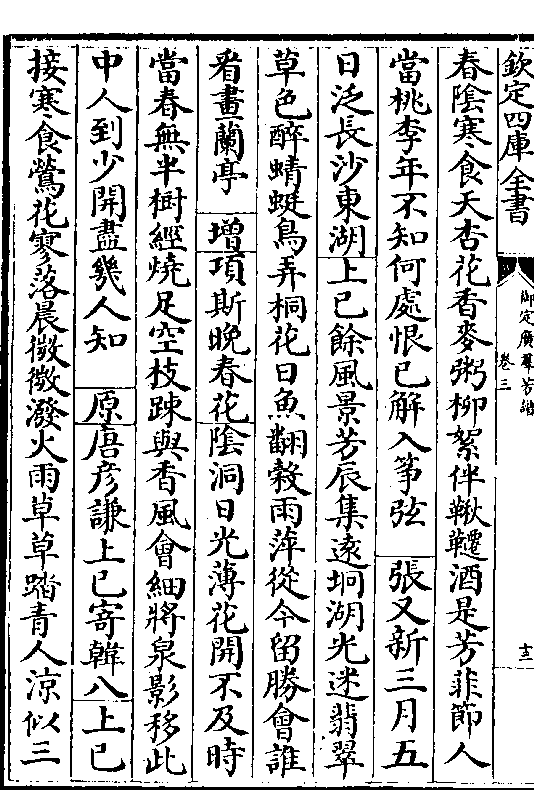 欽定四庫全書
御定廣羣芳譜
卷三
十三
春陰寒食天杏花香麥粥柳絮伴鞦韆酒是芳菲節人
當桃李年不知何處恨已解入箏弦 張又新三月五
日泛長沙東湖上已餘風景芳辰集遠坰湖光迷翡翠
草色醉蜻蜓鳥弄桐花日魚翻榖雨萍從今留勝會誰
看畫蘭亭 增項斯晩春花陰洞日光薄花開不及時
當春無半樹經燒足空枝踈與香風會細將泉影移此
中人到少開盡幾人知 原唐彦謙上已寄韓八上已
接寒食鶯花寥落晨微微潑火雨草草踏青人涼似三